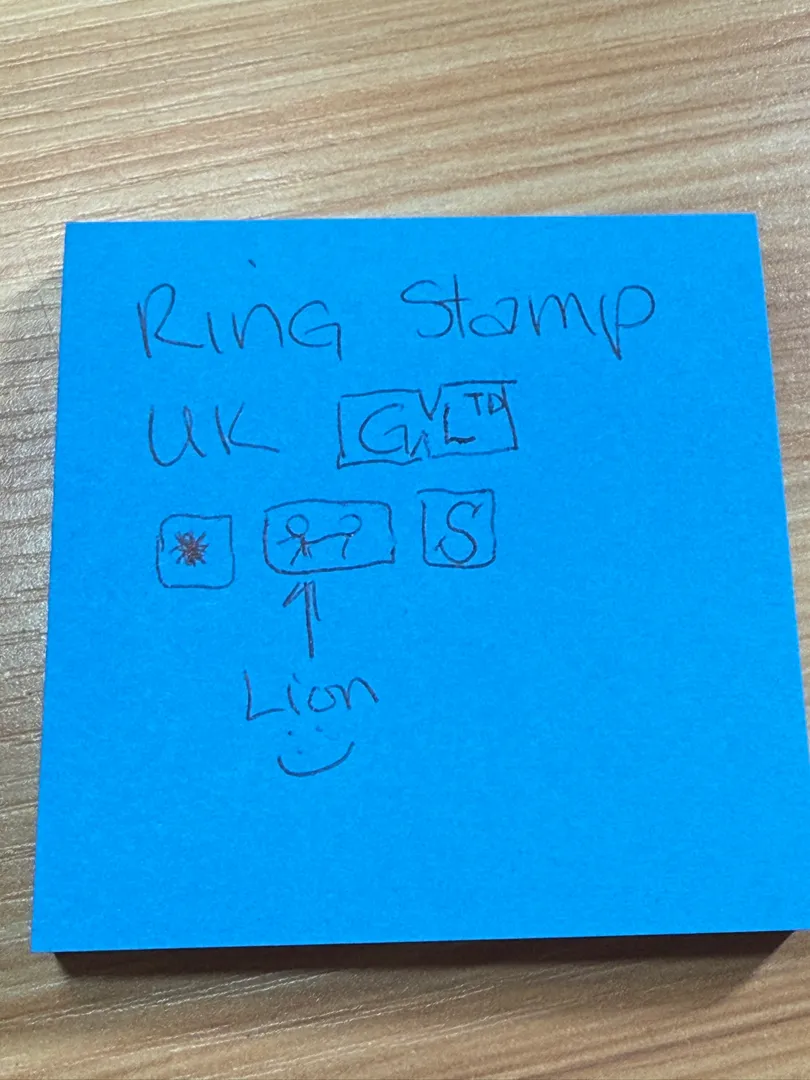 Ring Stamp
UK G LTD
S
Lion